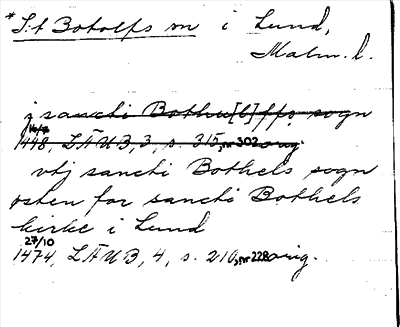 *S:t Botolfs sn i Lund,
Malm. l.
j sancti Bothu[l]ffs sogn
14/7
1448, LÄUB, 3, s. 315, nr 302 orig.
vtj sancti Bothels sogn
østen for sancti Bothels
kirke i Lund
27/10
1474, LÄUB, 4, s. 210, nr 228 orig.